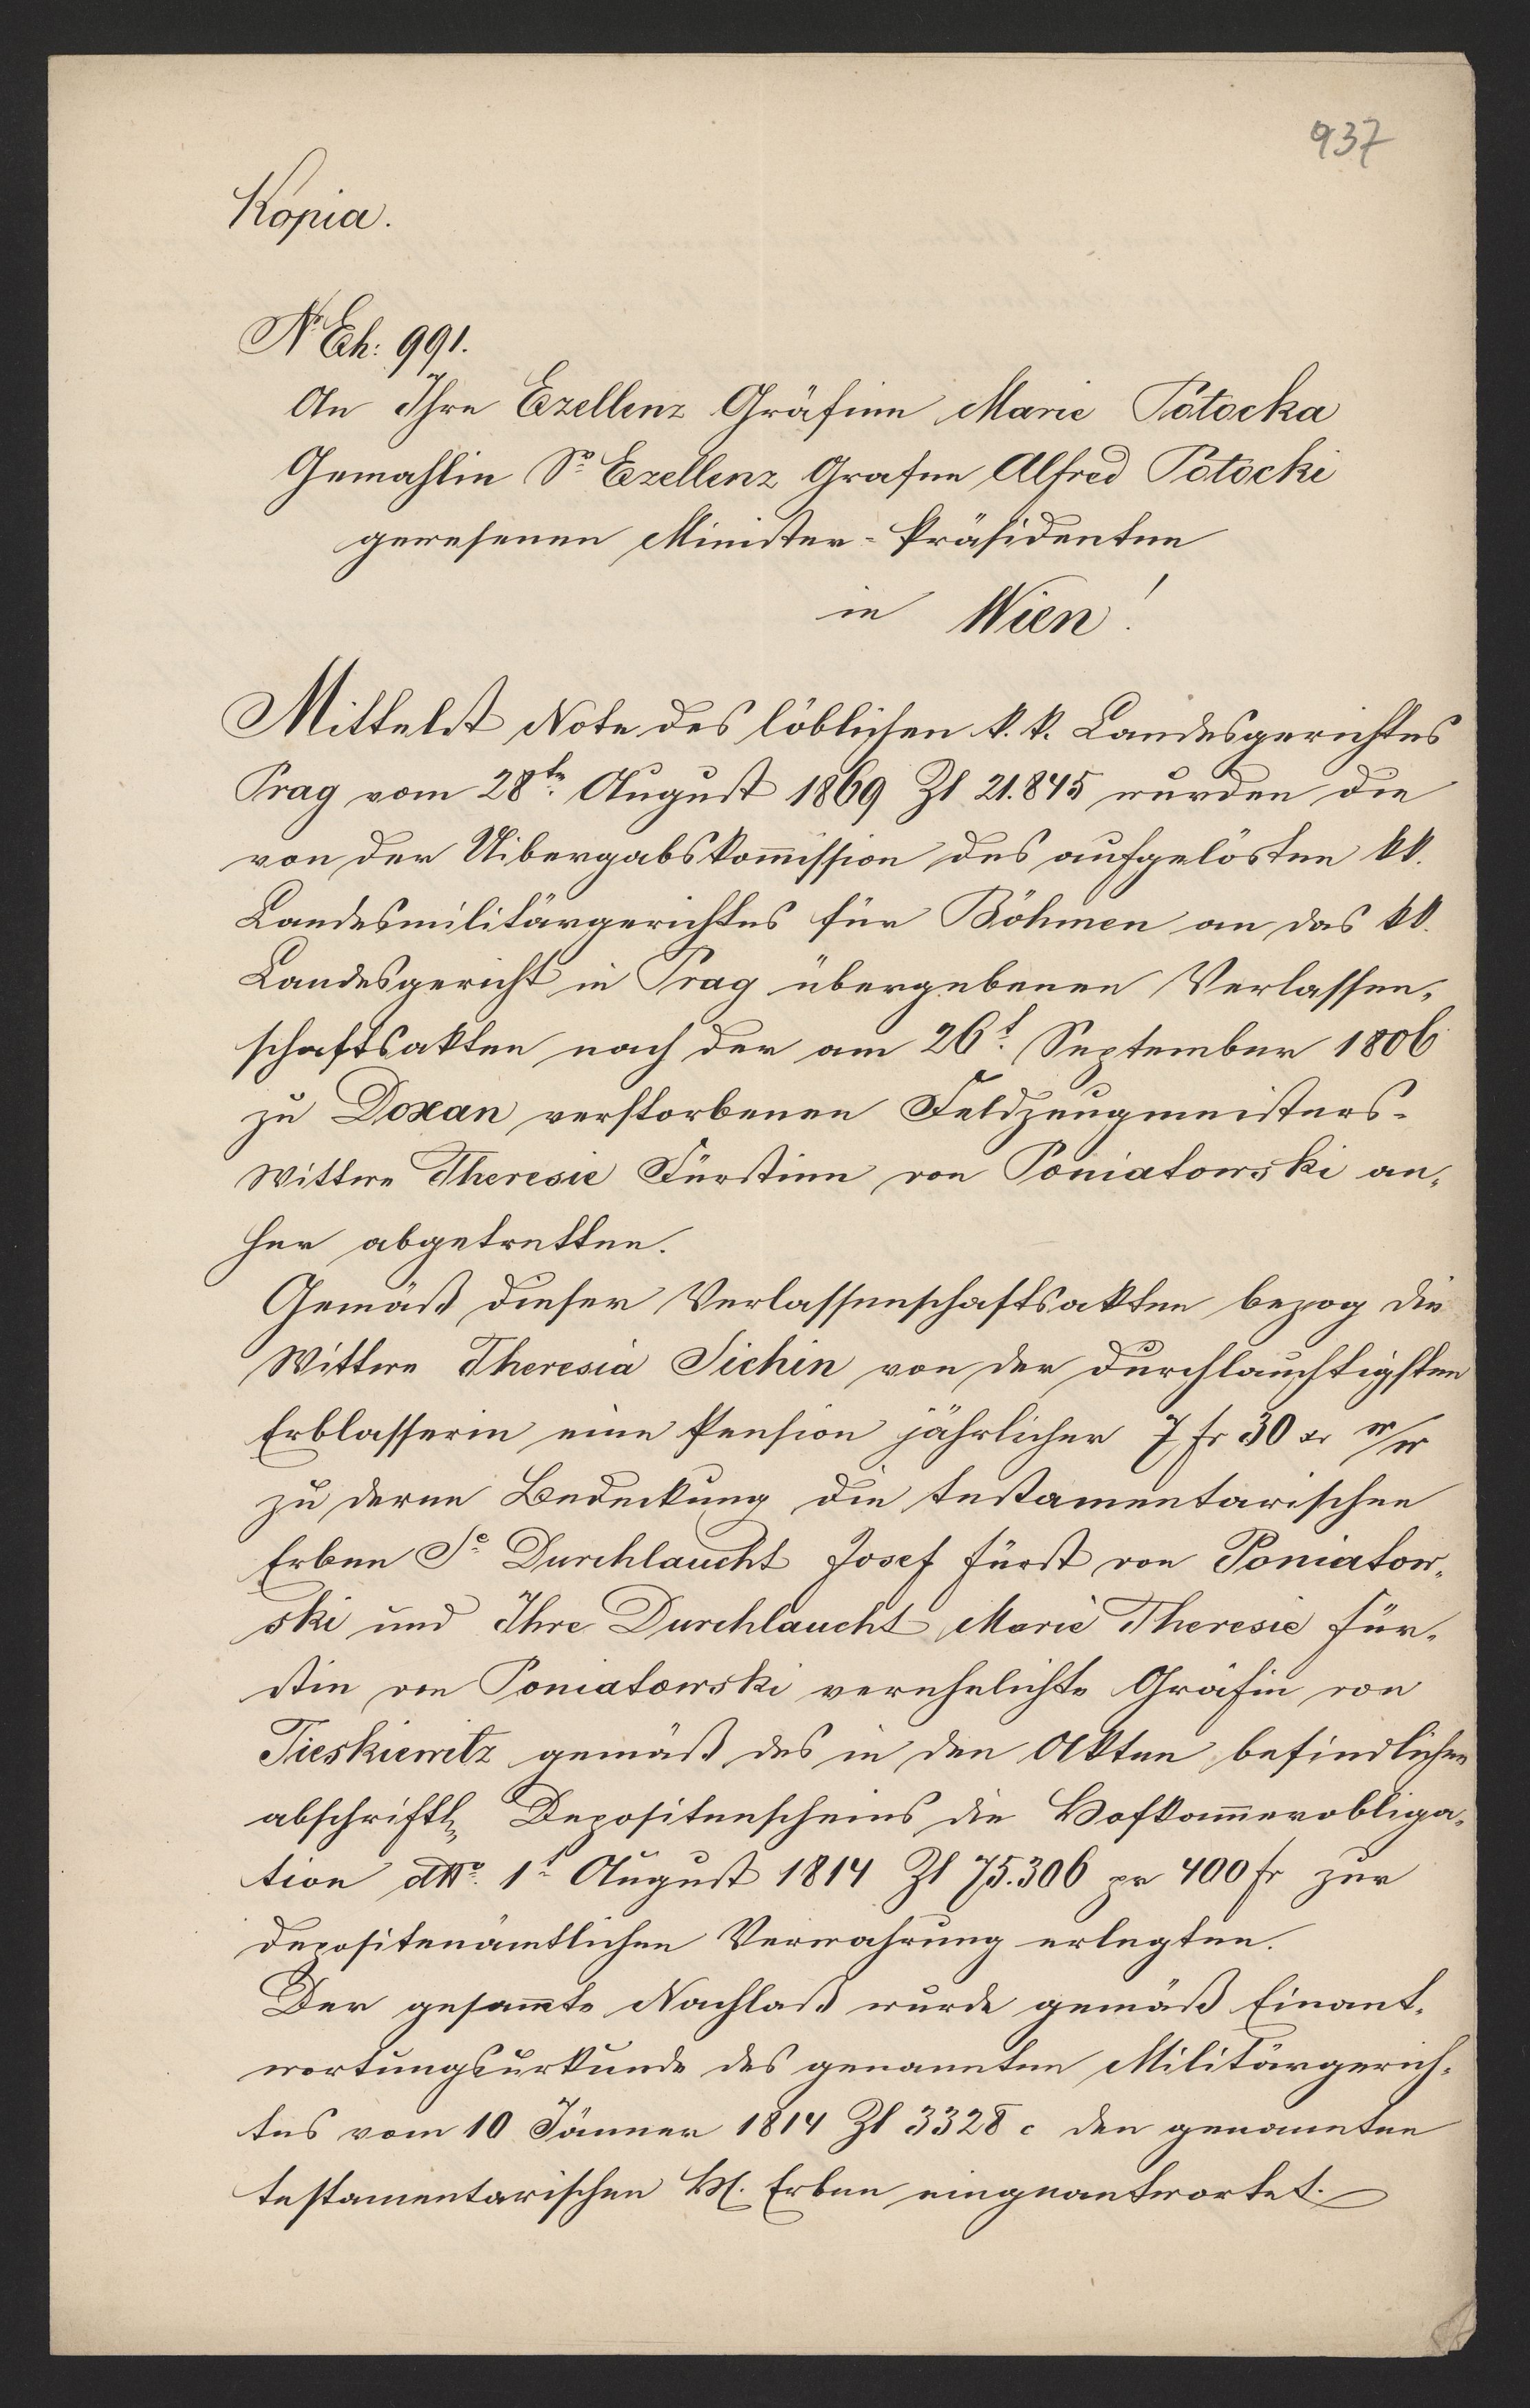 937
Kopia.
No Exh: 991.
An Ihre Exzellenz Gräfinn Marie Potocka
Gemahlin Sr Exzellenz Grafen Alfred Potocki
gewesenen Minister-Präsidenten
in Wien!
Mittelst Note des löblichen k. k. Landesgerichtes
Prag vom 28ten August 1869 Zl 21.845 wurden die
von der Uibergabskom̅ission des aufgelösten kk.
Landesmilitärgerichtes für Böhmen an das kk.
Landesgericht in Prag übergebenen Verlassen-
schaftsakten nach der am 26t September 1806
zu Doxan verstorbenen Feldzeugmeisters-
Wittwe Theresie Fürstinn von Poniatowski an-
her abgetretten.
Gemäß dieser Verlassenschaftsakten bezog die
Wittwe Theresia Sichin von der durchlauchtigsten
Erblasserin eine Pension jährlicher 7 fr 30 xr W/W
zu deren Bedeckung die testamentarischen
Erben Se Durchlaucht Josef Fürst von Poniatow-
ski und Ihre Durchlaucht Marie Theresie Für-
stin von Poniatowski verehelichte Gräfin von
Tieskiewitz gemäß des in den Akten befindlichen
abschriftl. Depositenscheins die Hofkam̅erobliga-
tion dtto. 1t August 1814 Zl 75.306 pr 400 fr zur
depositenämtlichen Verwahrung erlegten.
Der gesam̅te Nachlaß wurde gemäß Einant-
wortungsurkunde des genannten Militärgerich-
tes vom 10 Jänner 1814 Zl 3328 c den genannten
testamentarischen H. Erben eingeantwortet.